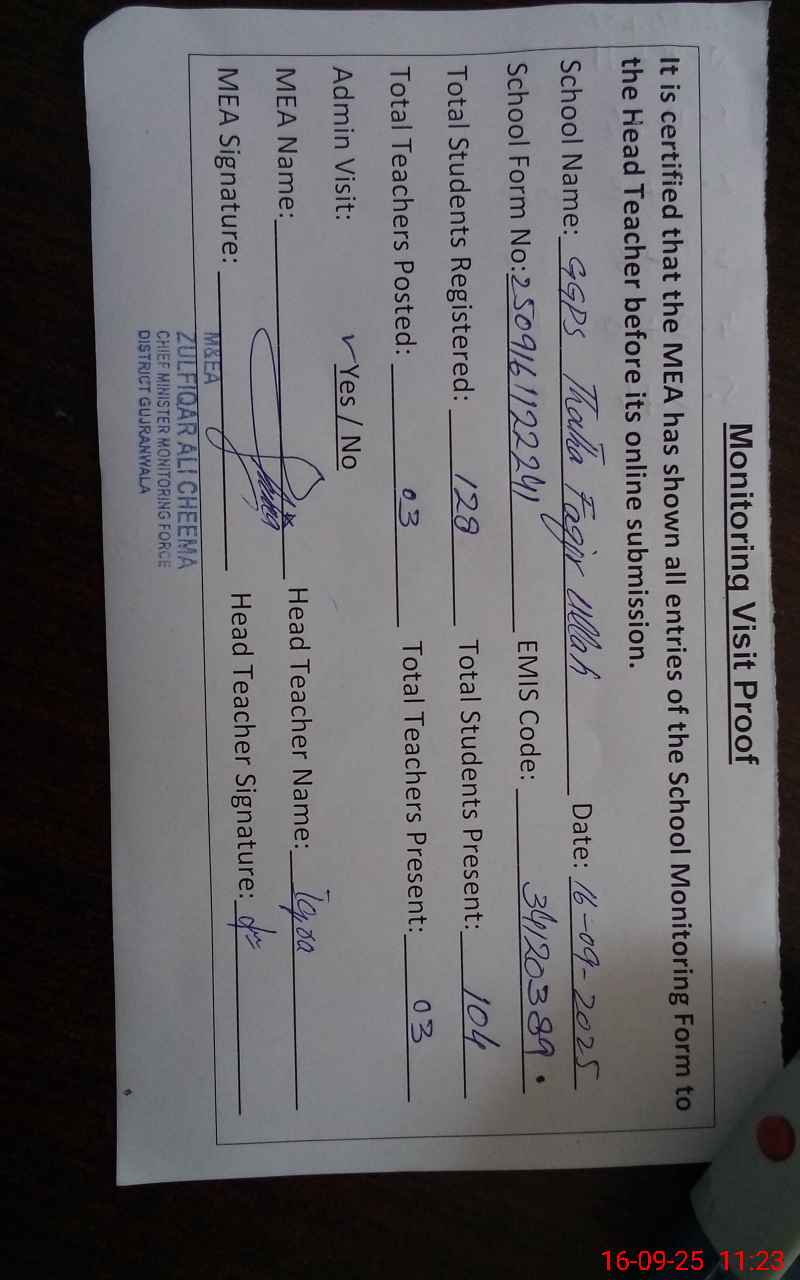 Monitoring Visit Proof
It is certified that the MEA has shown all entries of the School Monitoring Form to
the Head Teacher before its online submission.
School Name: GGPS Thatha Faqir Ullah Date: 16-09-2025
School Form No: 2509161122241 EMIS Code: 34120389
Total Students Registered: 128 Total Students Present: 104
Total Teachers Posted: 03 Total Teachers Present: 03
Admin Visit: ✓Yes / No
MEA Name: Head Teacher Name: Iqra
MEA Signature: Head Teacher Signature:
M&EA
ZULFIQAR ALI CHEEMA
CHIEF MINISTER MONITORING FORCE
DISTRICT GUJRANWALA
16-09-25 11:23